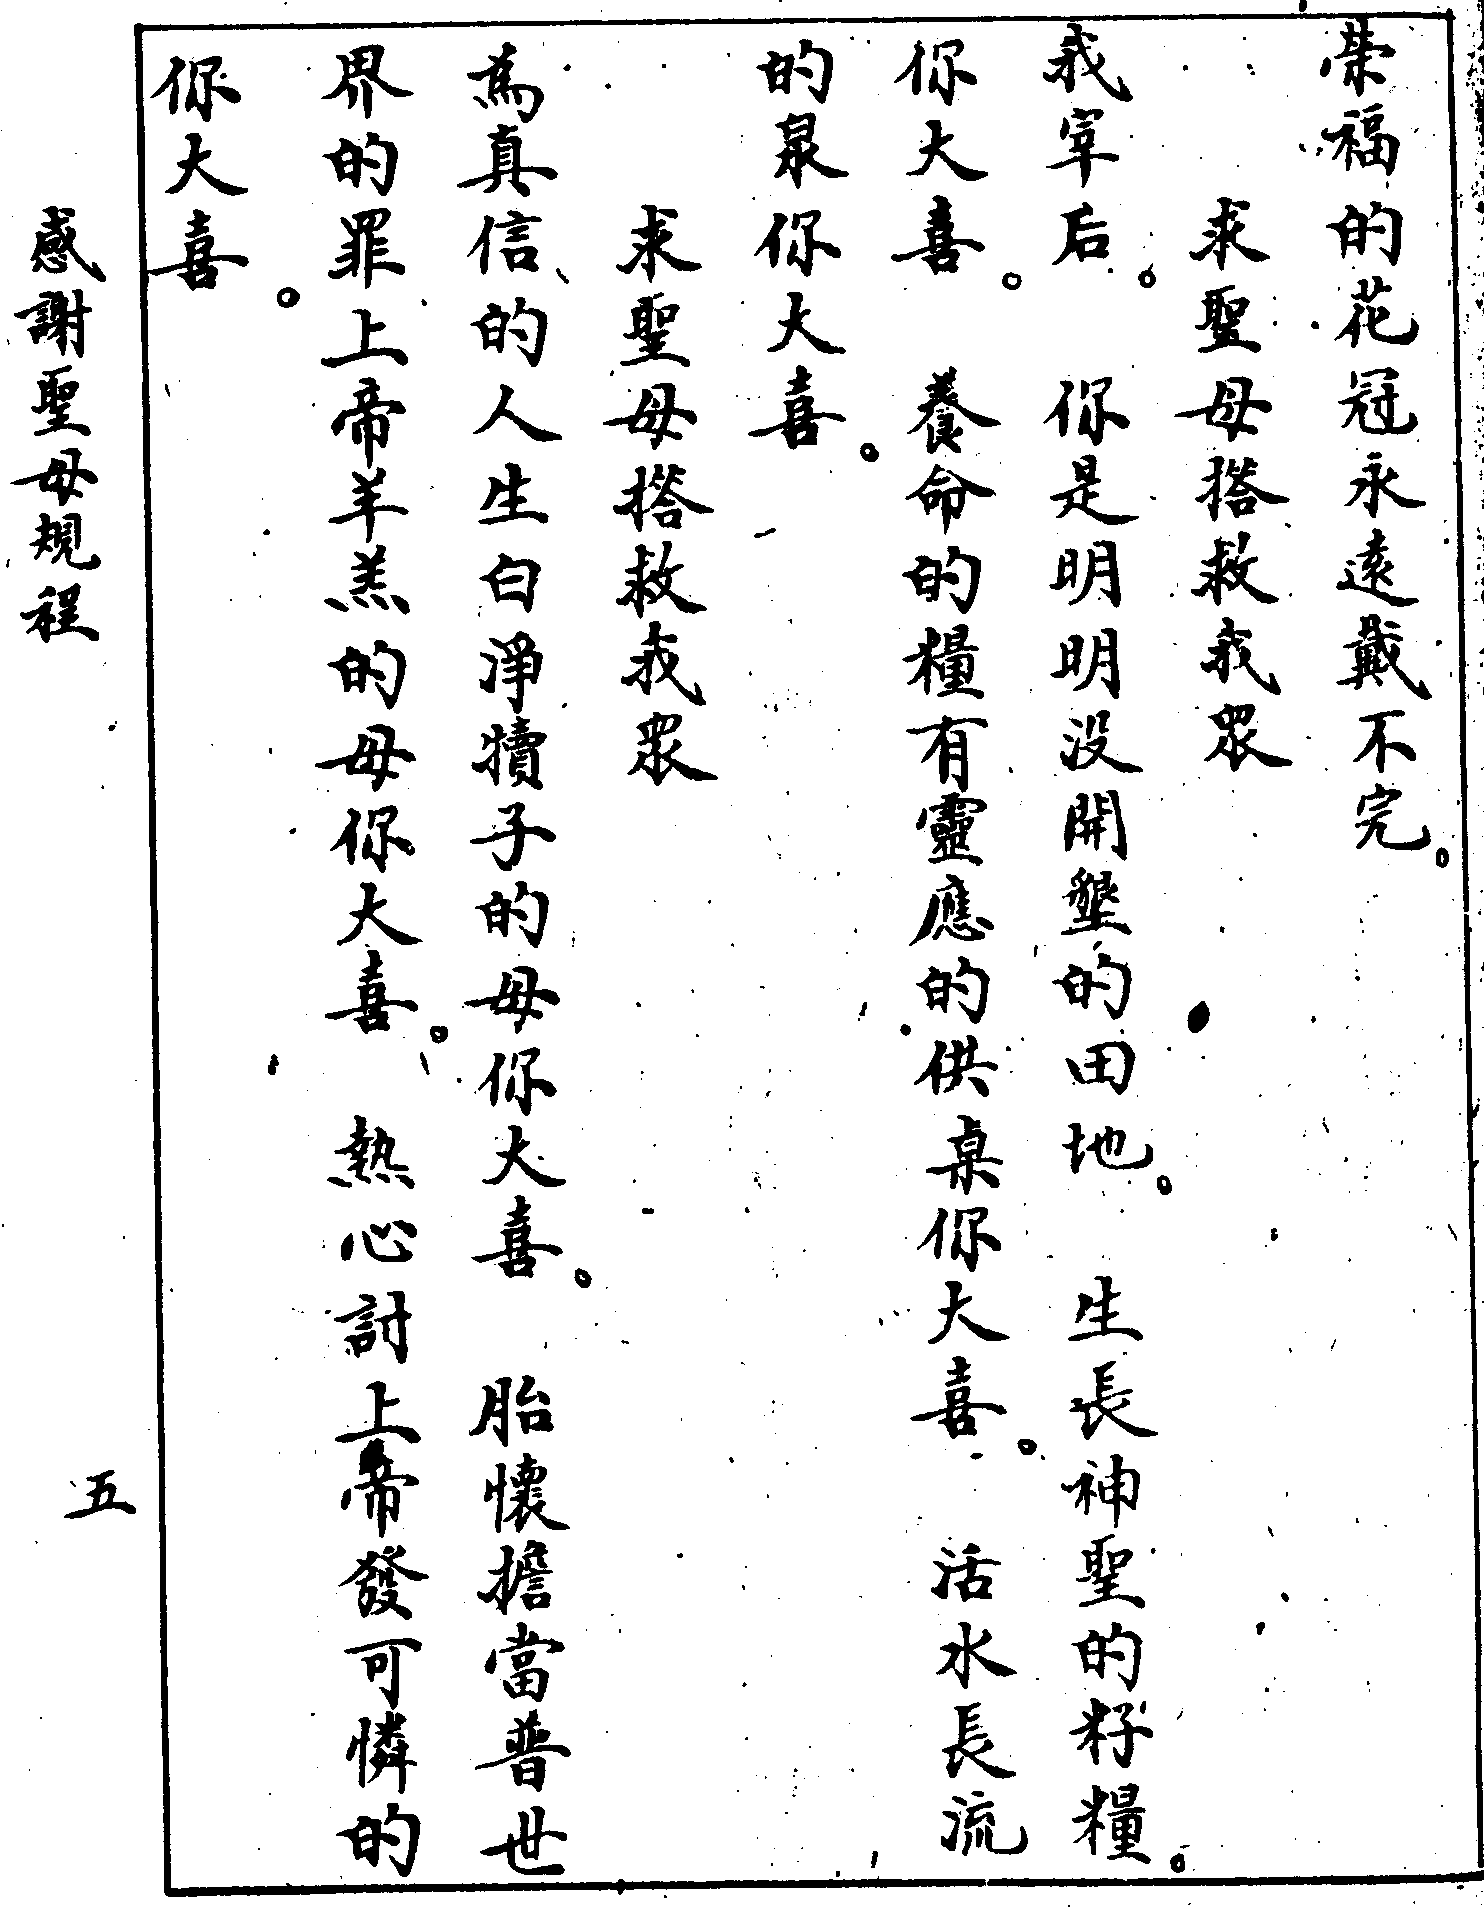 荣福的花冠永遠戴不完。
求聖母搭救我眾
我宰后。 你是明明没開墾的田地。 生長神聖的籽糧。
你大喜。 養命的糧有靈應的供桌你大喜。 活水長流
的泉你大喜。
求聖母搭救我眾
為真信的人生白淨犢子的母你大喜。 胎懷擔當普世
界的罪上帝羊羔的母你大喜。 熱心討上帝發可憐的
你大喜。
感謝聖母規程
五